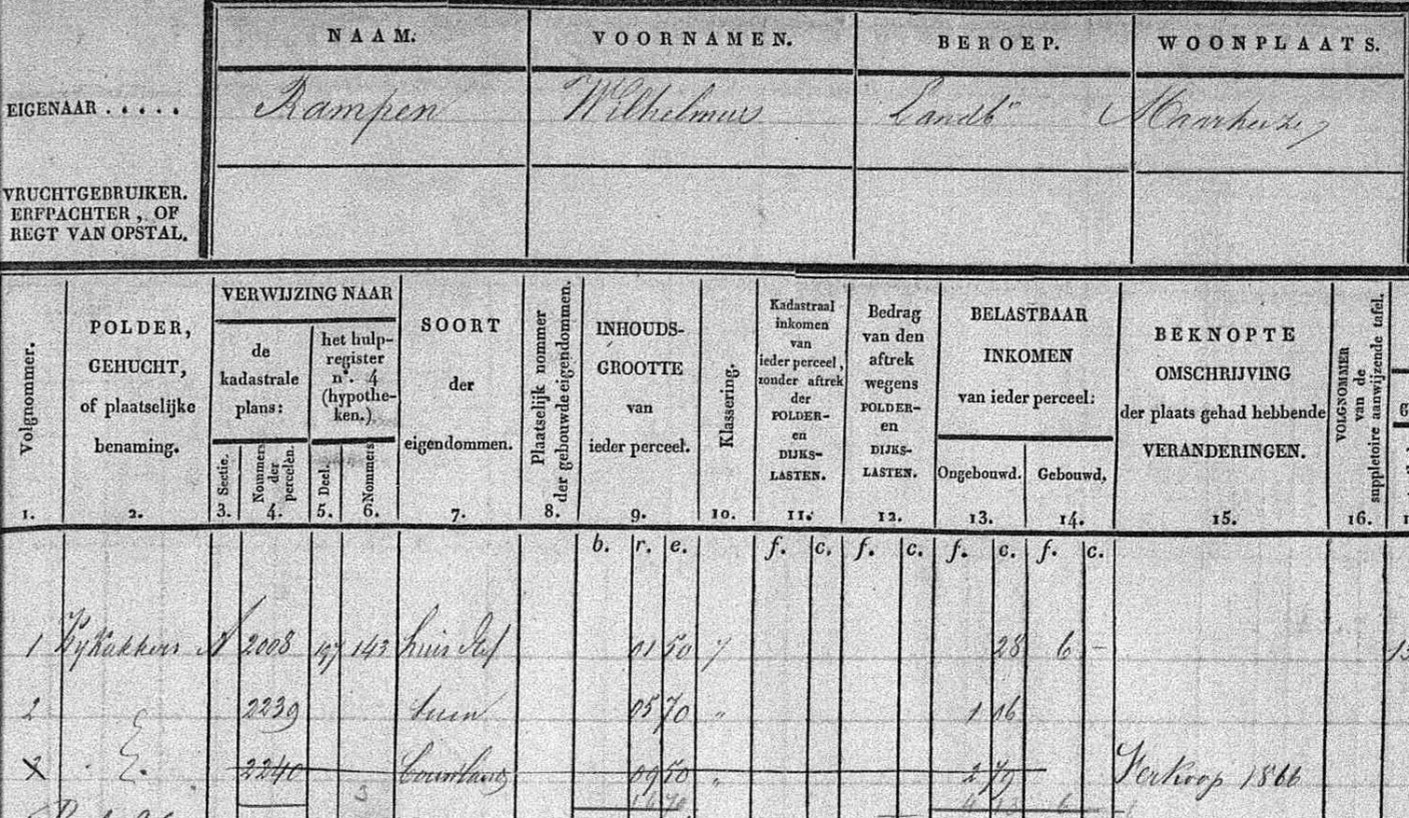 NAAM. VOORNAMEN. BEROEP. WOONPLAATS.
EIGENAAR . . . . . Rampen Wilhelmus Landbr Maarheeze
VRUCHTGEBRUIKER.
ERFPACHTER, OF
REGT VAN OPSTAL.
Volgnommer.
1.
POLDER,
GEHUCHT,
of plaatselijke
benaming.
2.
VERWIJZING NAAR
de
kadastrale
plans:
Sectie.
3.
Nommers
der
percelen.
4.
het hulp-
register
n°. 4
(hypothe-
ken.)
Deel.
5.
Nommers
6.
SOORT
der
eigendommen.
7.
Plaatselijk nommer
der gebouwde eigendommen.
8.
INHOUDS-
GROOTTE
van
ieder perceel.
9.
Klassering.
10.
Kadastraal
inkomen
van
ieder perceel,
zonder aftrek
der
POLDER-
en
DIJKS-
LASTEN.
11.
Bedrag
van den
aftrek
wegens
POLDER-
en
DIJKS-
LASTEN.
12.
BELASTBAAR
INKOMEN
van ieder perceel:
Ongebouwd.
13.
Gebouwd,
14.
BEKNOPTE
OMSCHRIJVING
der plaats gehad hebbende
VERANDERINGEN.
15.
VOLGNOMMER
van de
suppletoire aanwijzende tafel.
16.
b. r. e. f. c. f. c. f. c. f. c.
1 A 2008 197 143 huis & erf 01 50 7 28 6 –
2 2239 tuin 05 70 „ 1 06
2240 bouwland 09 50 „ 2 79 Verkoop 1866
3